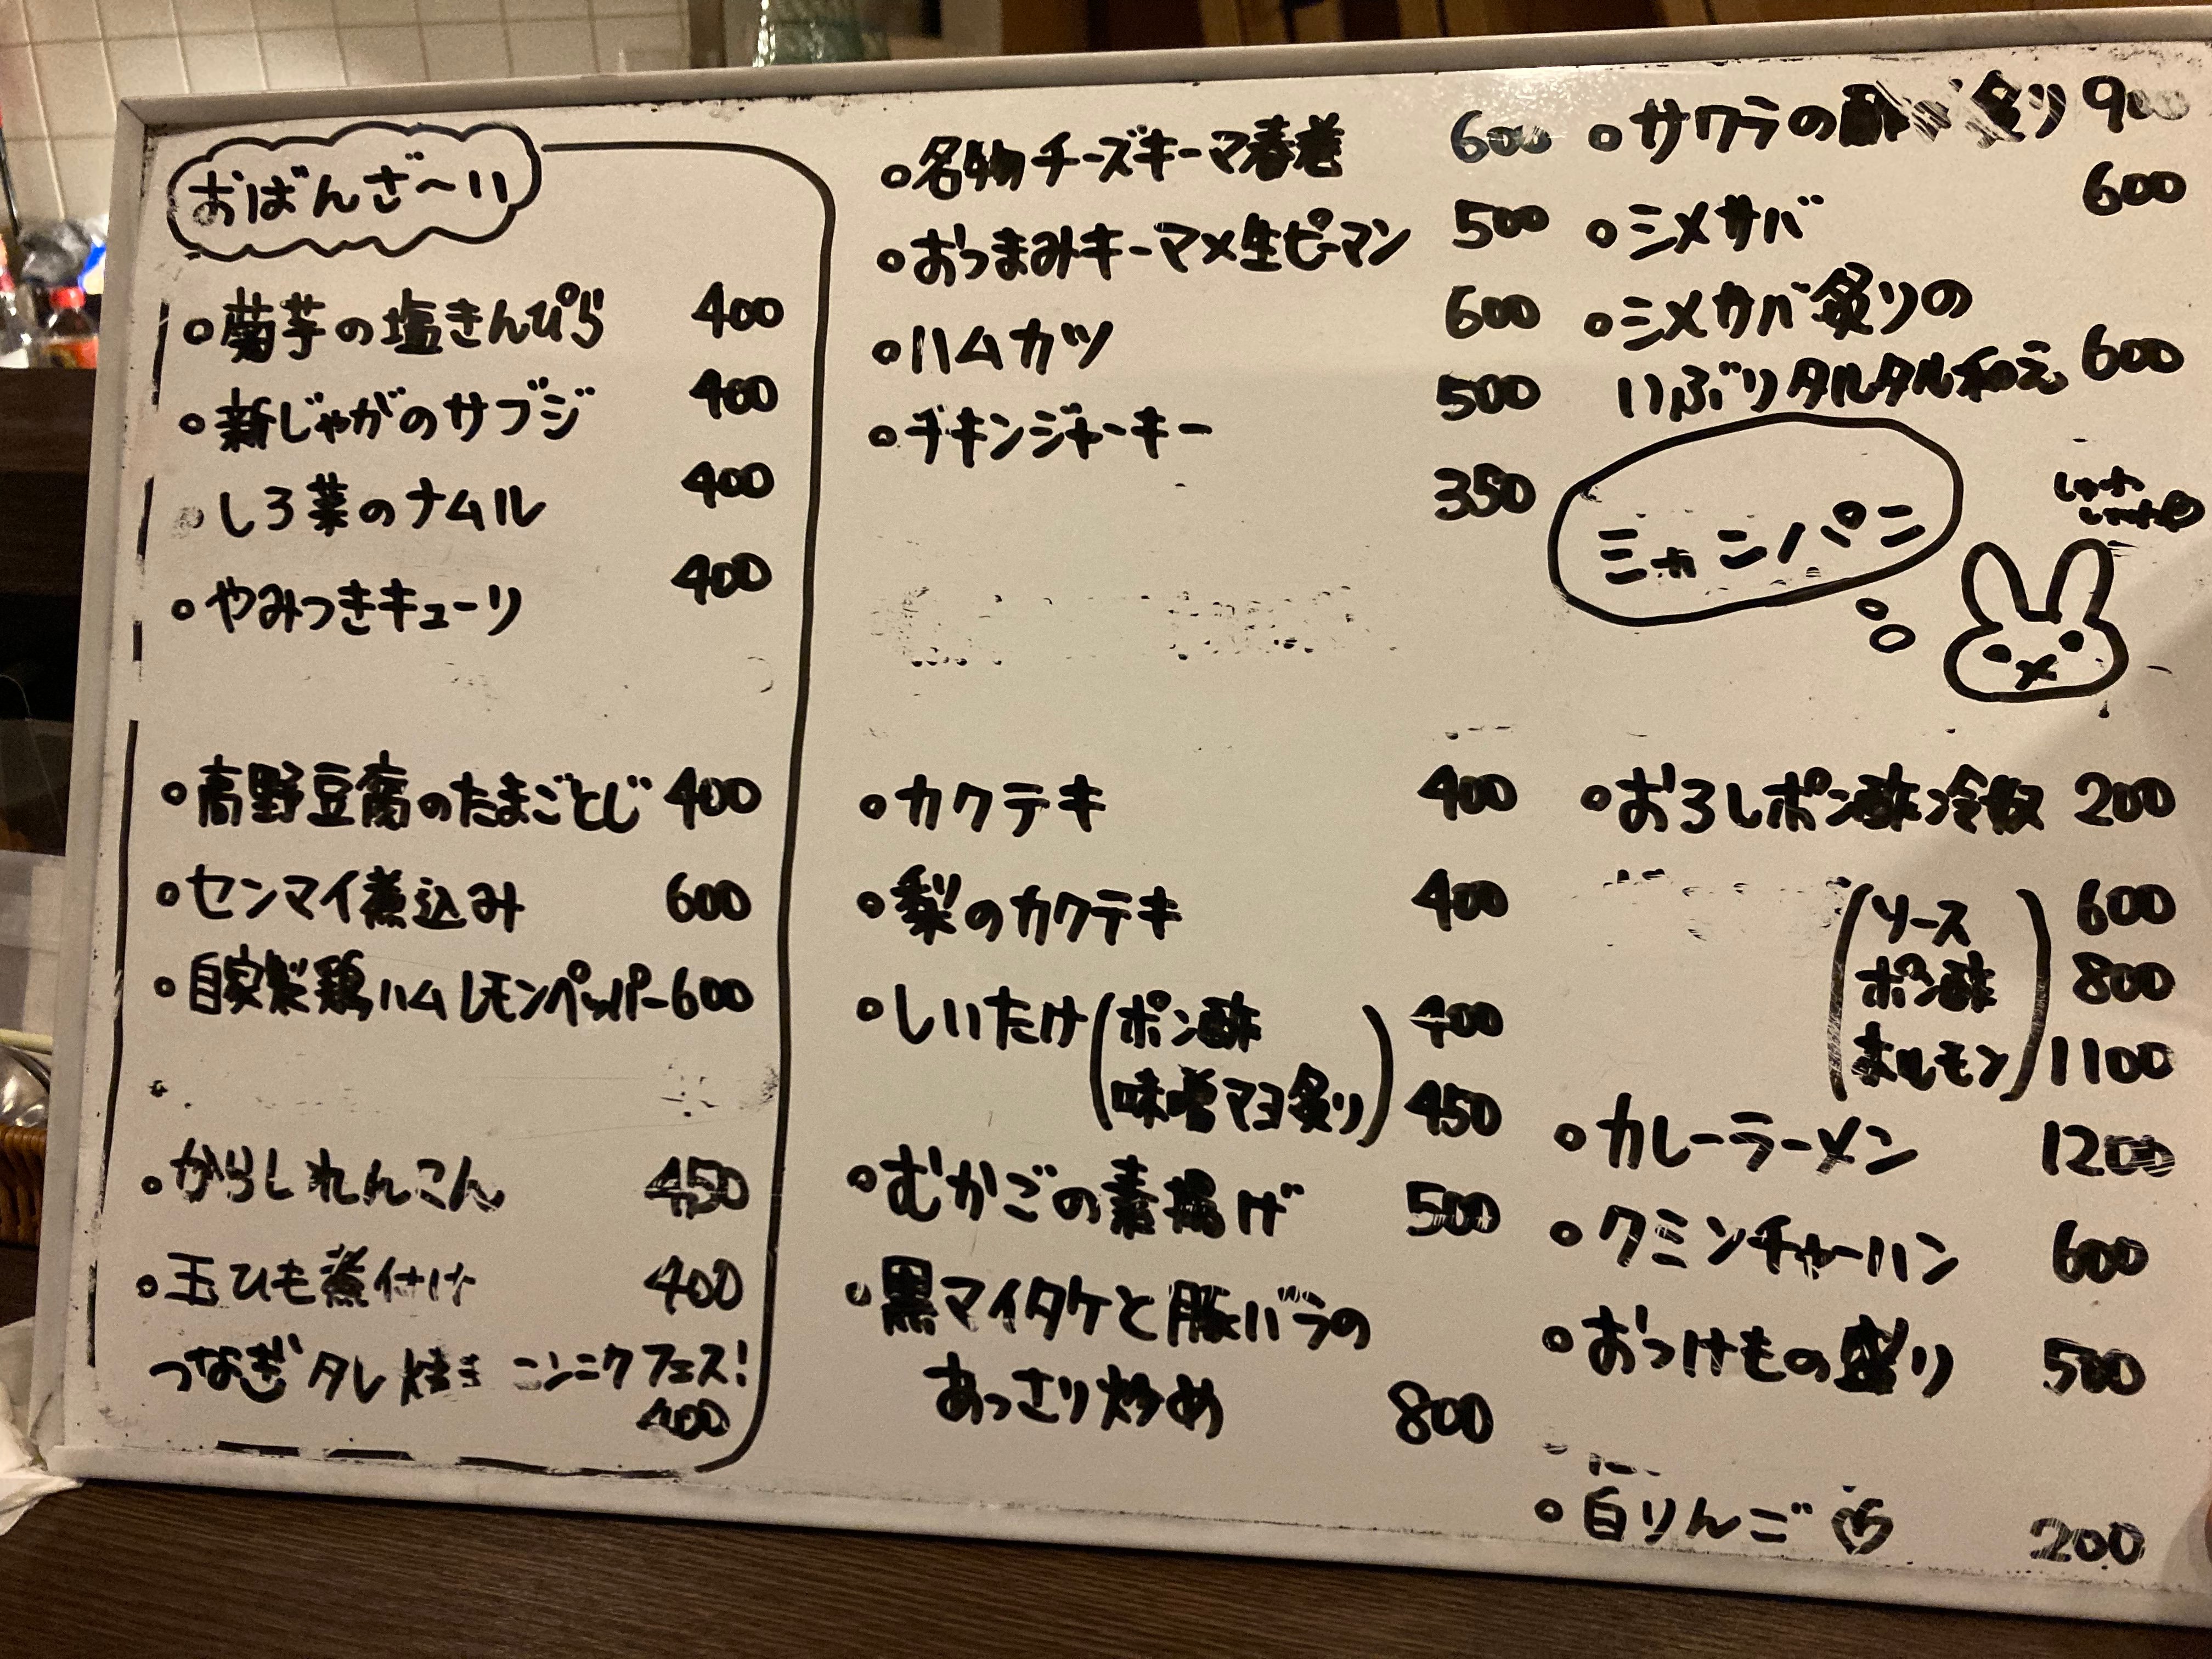 おばんざ〜い
・菊芋の塩きんぴら 400
・新じゃがのサブジ 400
・しろ菜のナムル 400
・やみつきキューリ 400
・高野豆腐のたまごとじ 400
・センマイ煮込み 600
・自家製鶏ハムレモンペッパー 600
・からしれんこん 450
・玉ひも煮付け 400
つなぎタレ焼き ニンニクフェス!
400
・名物チーズキーマ春巻 600
・おつまみキーマ×生ピーマン 500
・ハムカツ 600
・チキンジャーキー 500
350
・カクテキ 400
・梨のカクテキ 400
・しいたけ(ポン酢 400
味噌マヨ炙り) 450
・むかごの素揚げ 500
・黒マイタケと豚バラの
あっさり炒め 800
・サワラの 炙り 900
・シメサバ 600
・シメサバ炙りの
いぶりタルタル和え 600
シャンパン
・おろしポン酢冷奴 200
(ソース 600
ポン酢 800
ホルモン) 1100
・カレーラーメン 1200
・クミンチャーハン 600
・おつけもの盛り 500
・白りんご♡ 200